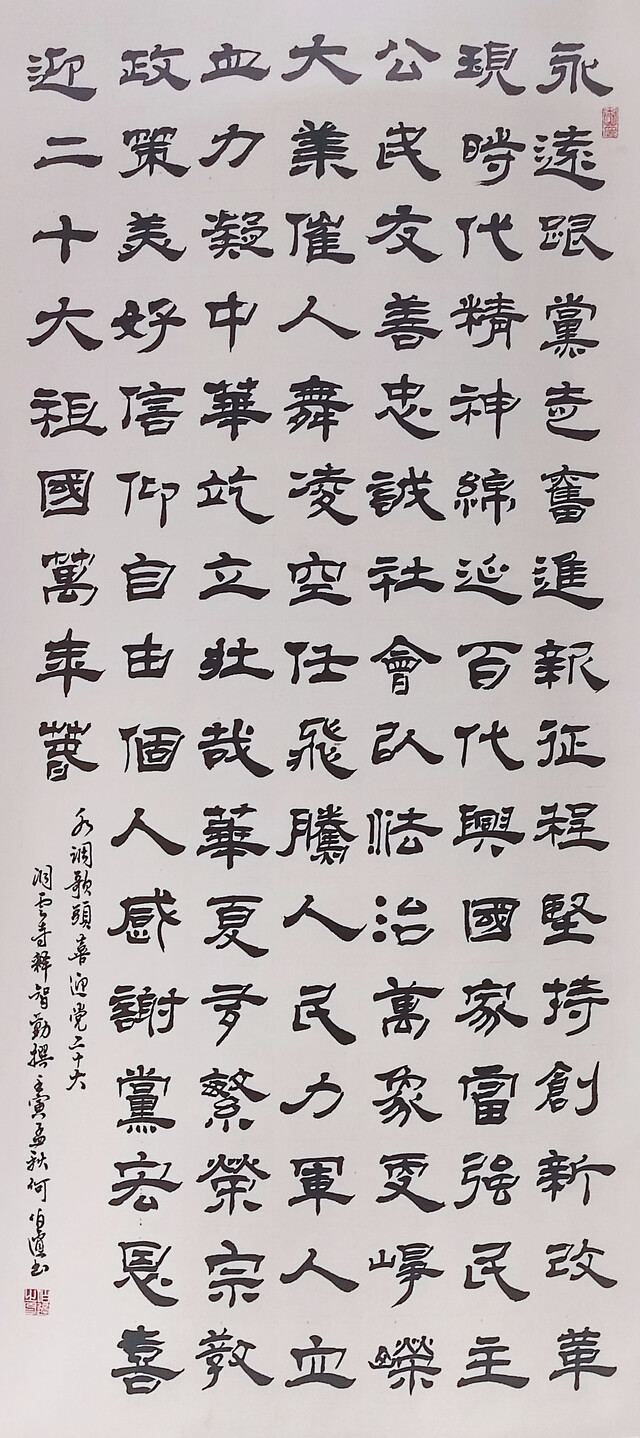 永遠跟黨走奮進新征程堅持創新改革
現時代精神綿延百代興國家富强民主
公民友善忠誠社會以法治萬象更崢嶸
大業催人舞凌空任飛騰人民力軍人血
血力凝中華屹立壯哉華夏多繁榮宗教
政策美好信仰自由個人感謝黨宏恩喜
迎二十大祖國萬年春
水調歌頭喜迎党二十大
洞雲寺釋智勤撰壬寅孟秋何伯